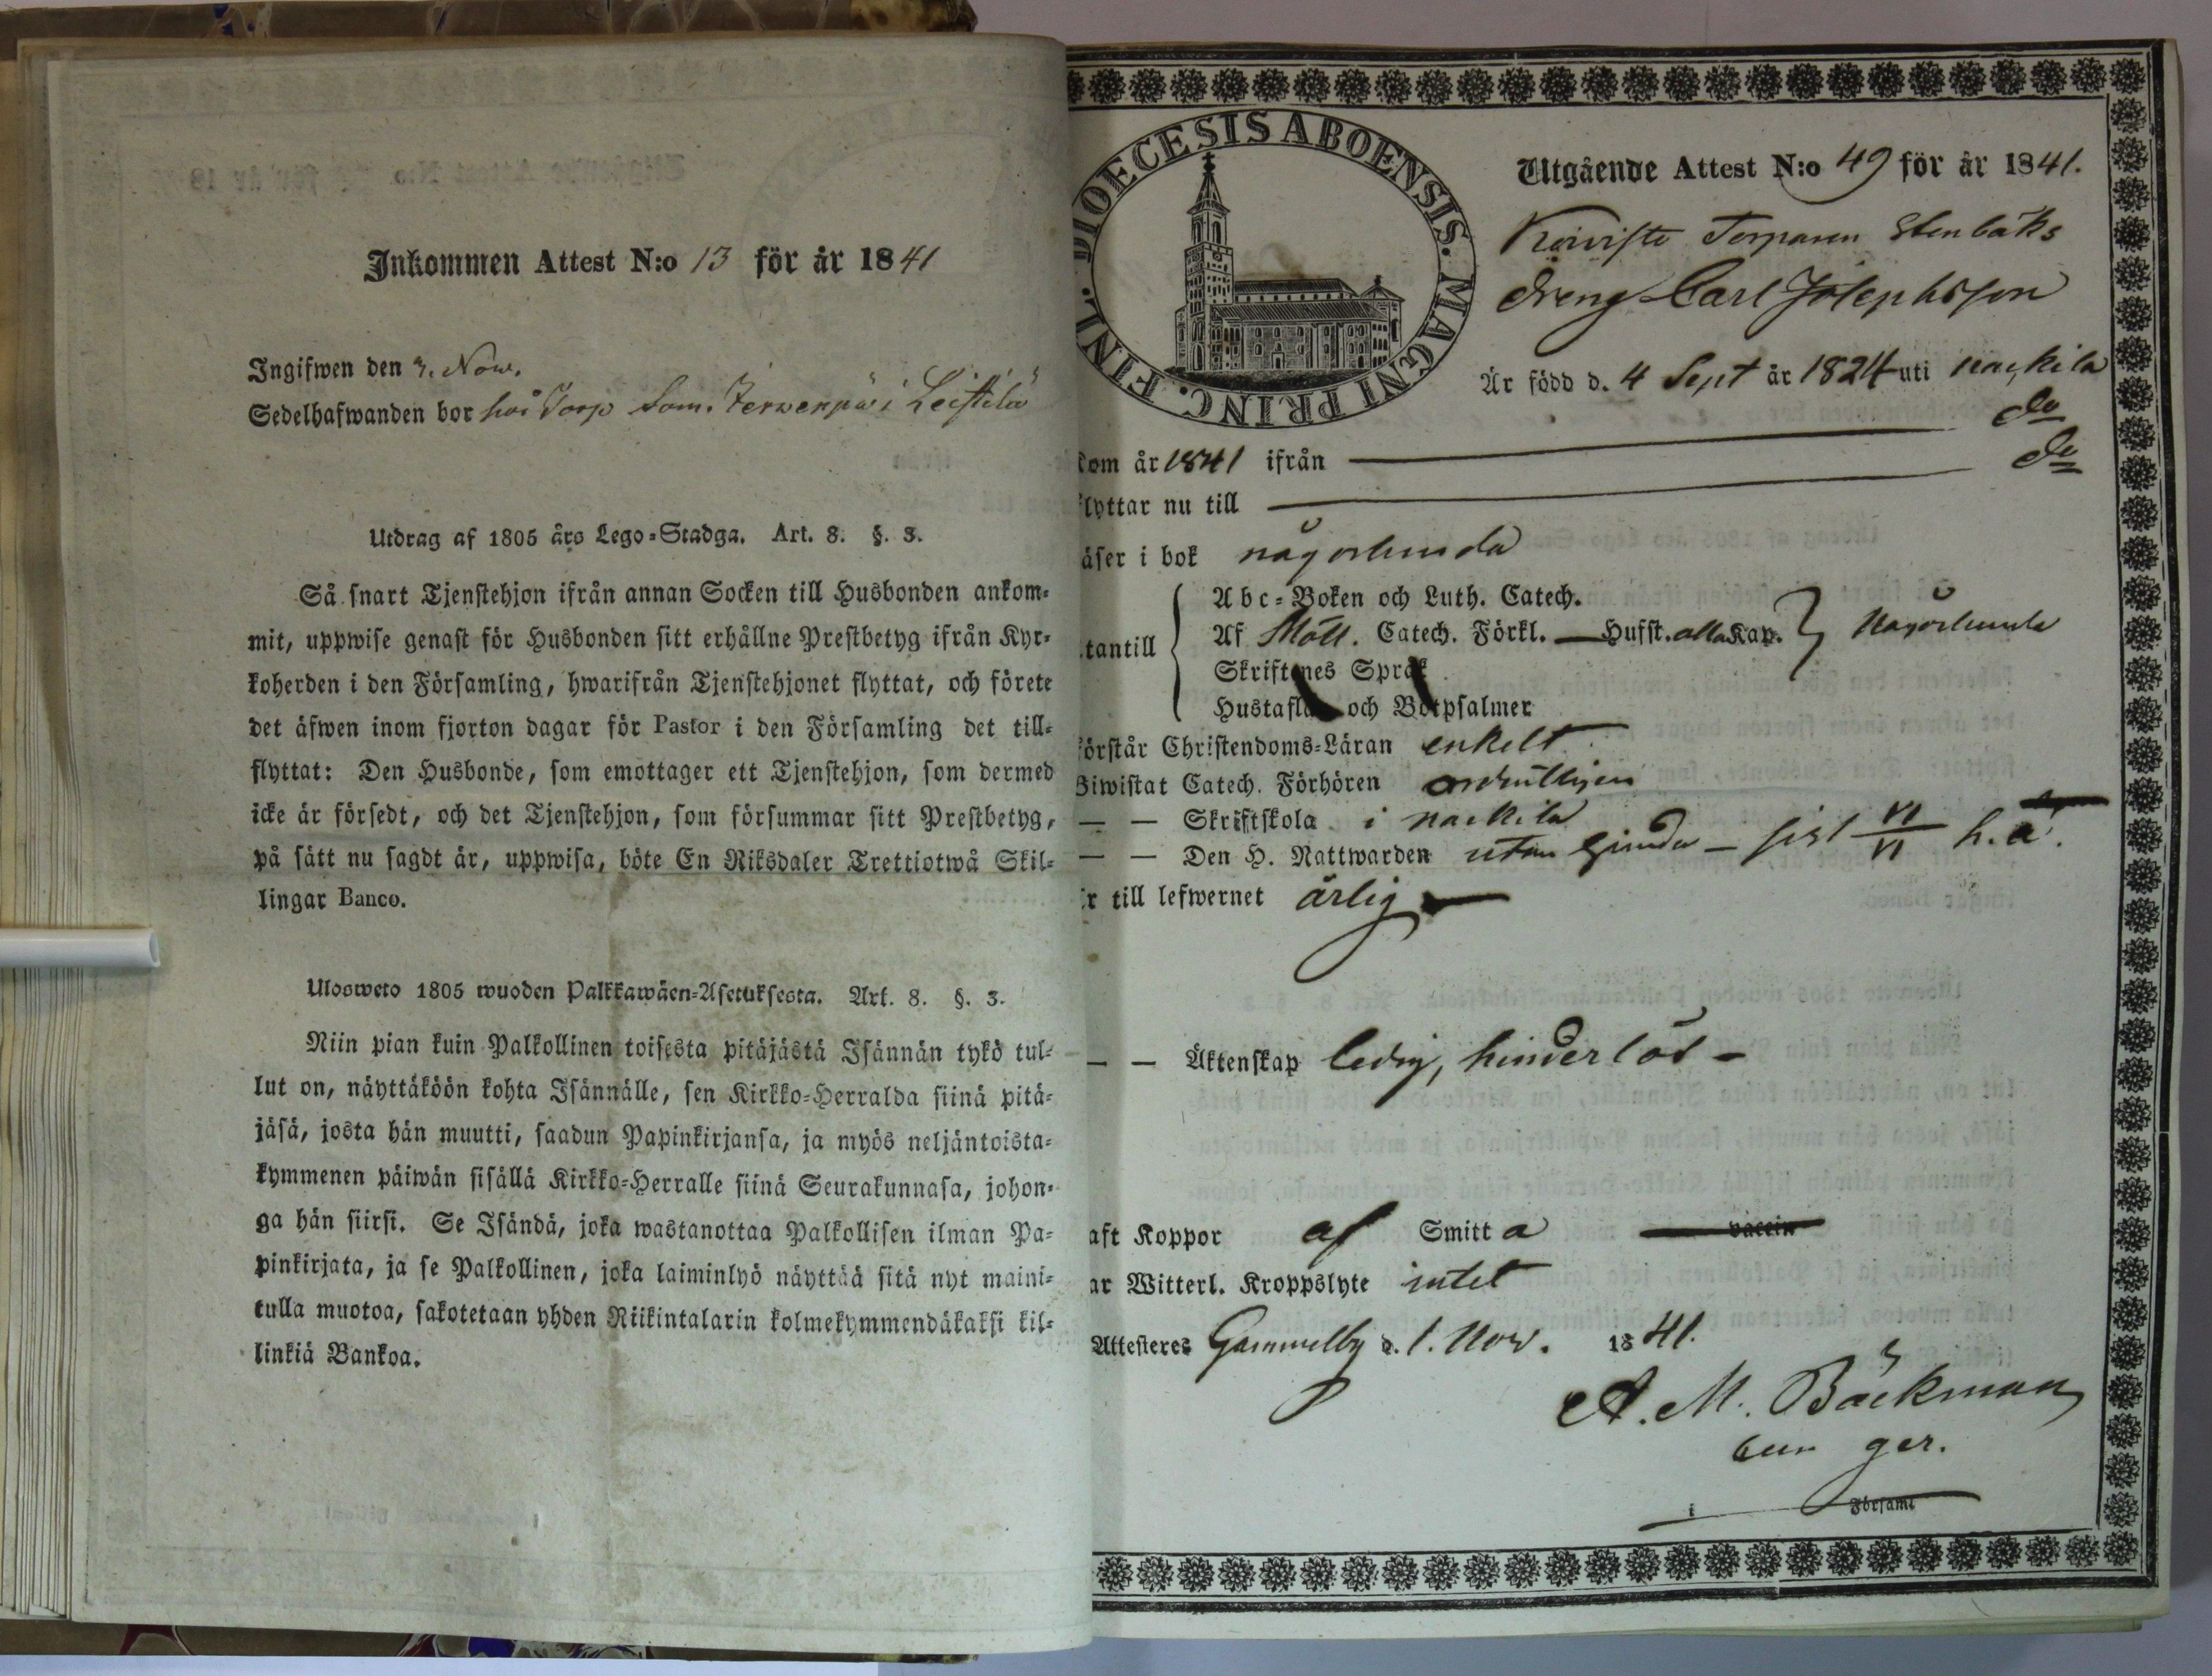 Inkommen Attest N:o 13 för år 1841
Ingifwen den 3. Now.
Sedelhafwanden bor hos Torp Sam. Jerwenpä i Leistilä
Utdrag af 1805 års Lego-Stadga. Art. 8. §. 3.
Så snart Tjenstehjon ifrån annan Socken till Husbonden ankom-
mit, uppwise genast för Husbonden sitt erhållne Prestbetyg ifrån Kyr-
koherden i den Församling, hwarifrån Tjenstehjonet flyttat, och förete
det äfwen inom fjorton dagar för Pastor i den Församling det till-
flyttat: Den Husbonde, som emottager ett Tjenstehjon, som dermed
icke är försedt, och det Tjenstehjon, som försummar sitt Prestbetyg,
på sätt nu sagdt är, uppwisa, böte En Riksdaler Trettiotwå Skil-
lingar Banco.
Ulosweto 1805 wuoden Palkkawäen-Asetuksesta. Art. 8. §. 3.
Niin pian kuin Palkollinen toisesta pitäjästä Isännän tykö tul-
lut on, näyttäköön kohta Isännälle, sen Kirkko-Herralda siinä pitä-
jäsä, josta hän muutti, saadun Papinkirjansa, ja myös neljäntoista-
kymmenen päiwän sisällä Kirkko-Herralle siinä Seurakunnasa, johon-
ga hän siirsi. Se Isändä, joka wastanottaa Palkollisen ilman Pa-
pinkirjata, ja se Palkollinen, joka laiminlyö näyttää sitä nyt maini-
tulla muotoa, sakotetaan yhden Riikintalarin kolmekymmendäkaksi kil-
linkiä Bankoa.
DIOECESIS ABOENSIS. MAGNI PRINC. FINL.
Utgående Attest N:o 49 för år 1841.
Koivisto Torparen Stenbäks
dreng Carl Josephsson
Är född d. 4 Sept år 1824 uti Nackila
Kom år 1841 ifrån do
flyttar nu till do
äser i bok någorlunda
Abc-Boken och Luth. Catech.
tantill Af Möll. Catech. Förkl. — Husst. alla Kap. Någorlunda
Skriftenes Språk
Hustaflan och Botpsalmer
förstår Christendoms-Läran enkelt
Biwistat Catech. Förhören ordentligen
— — Skriftskola i Nackila
— — Den H. Nattwarden sist VI/VI h. a.
r till lefwernet ärlig
— — Äktenskap ledig, hinderlös
aft Koppor af Smitta vaccin
ar Witterl. Kroppslyte intet
Attesteres Gammelby d. 1. Nov. 1841.
A. M. Bäckman
ger.
i Församl